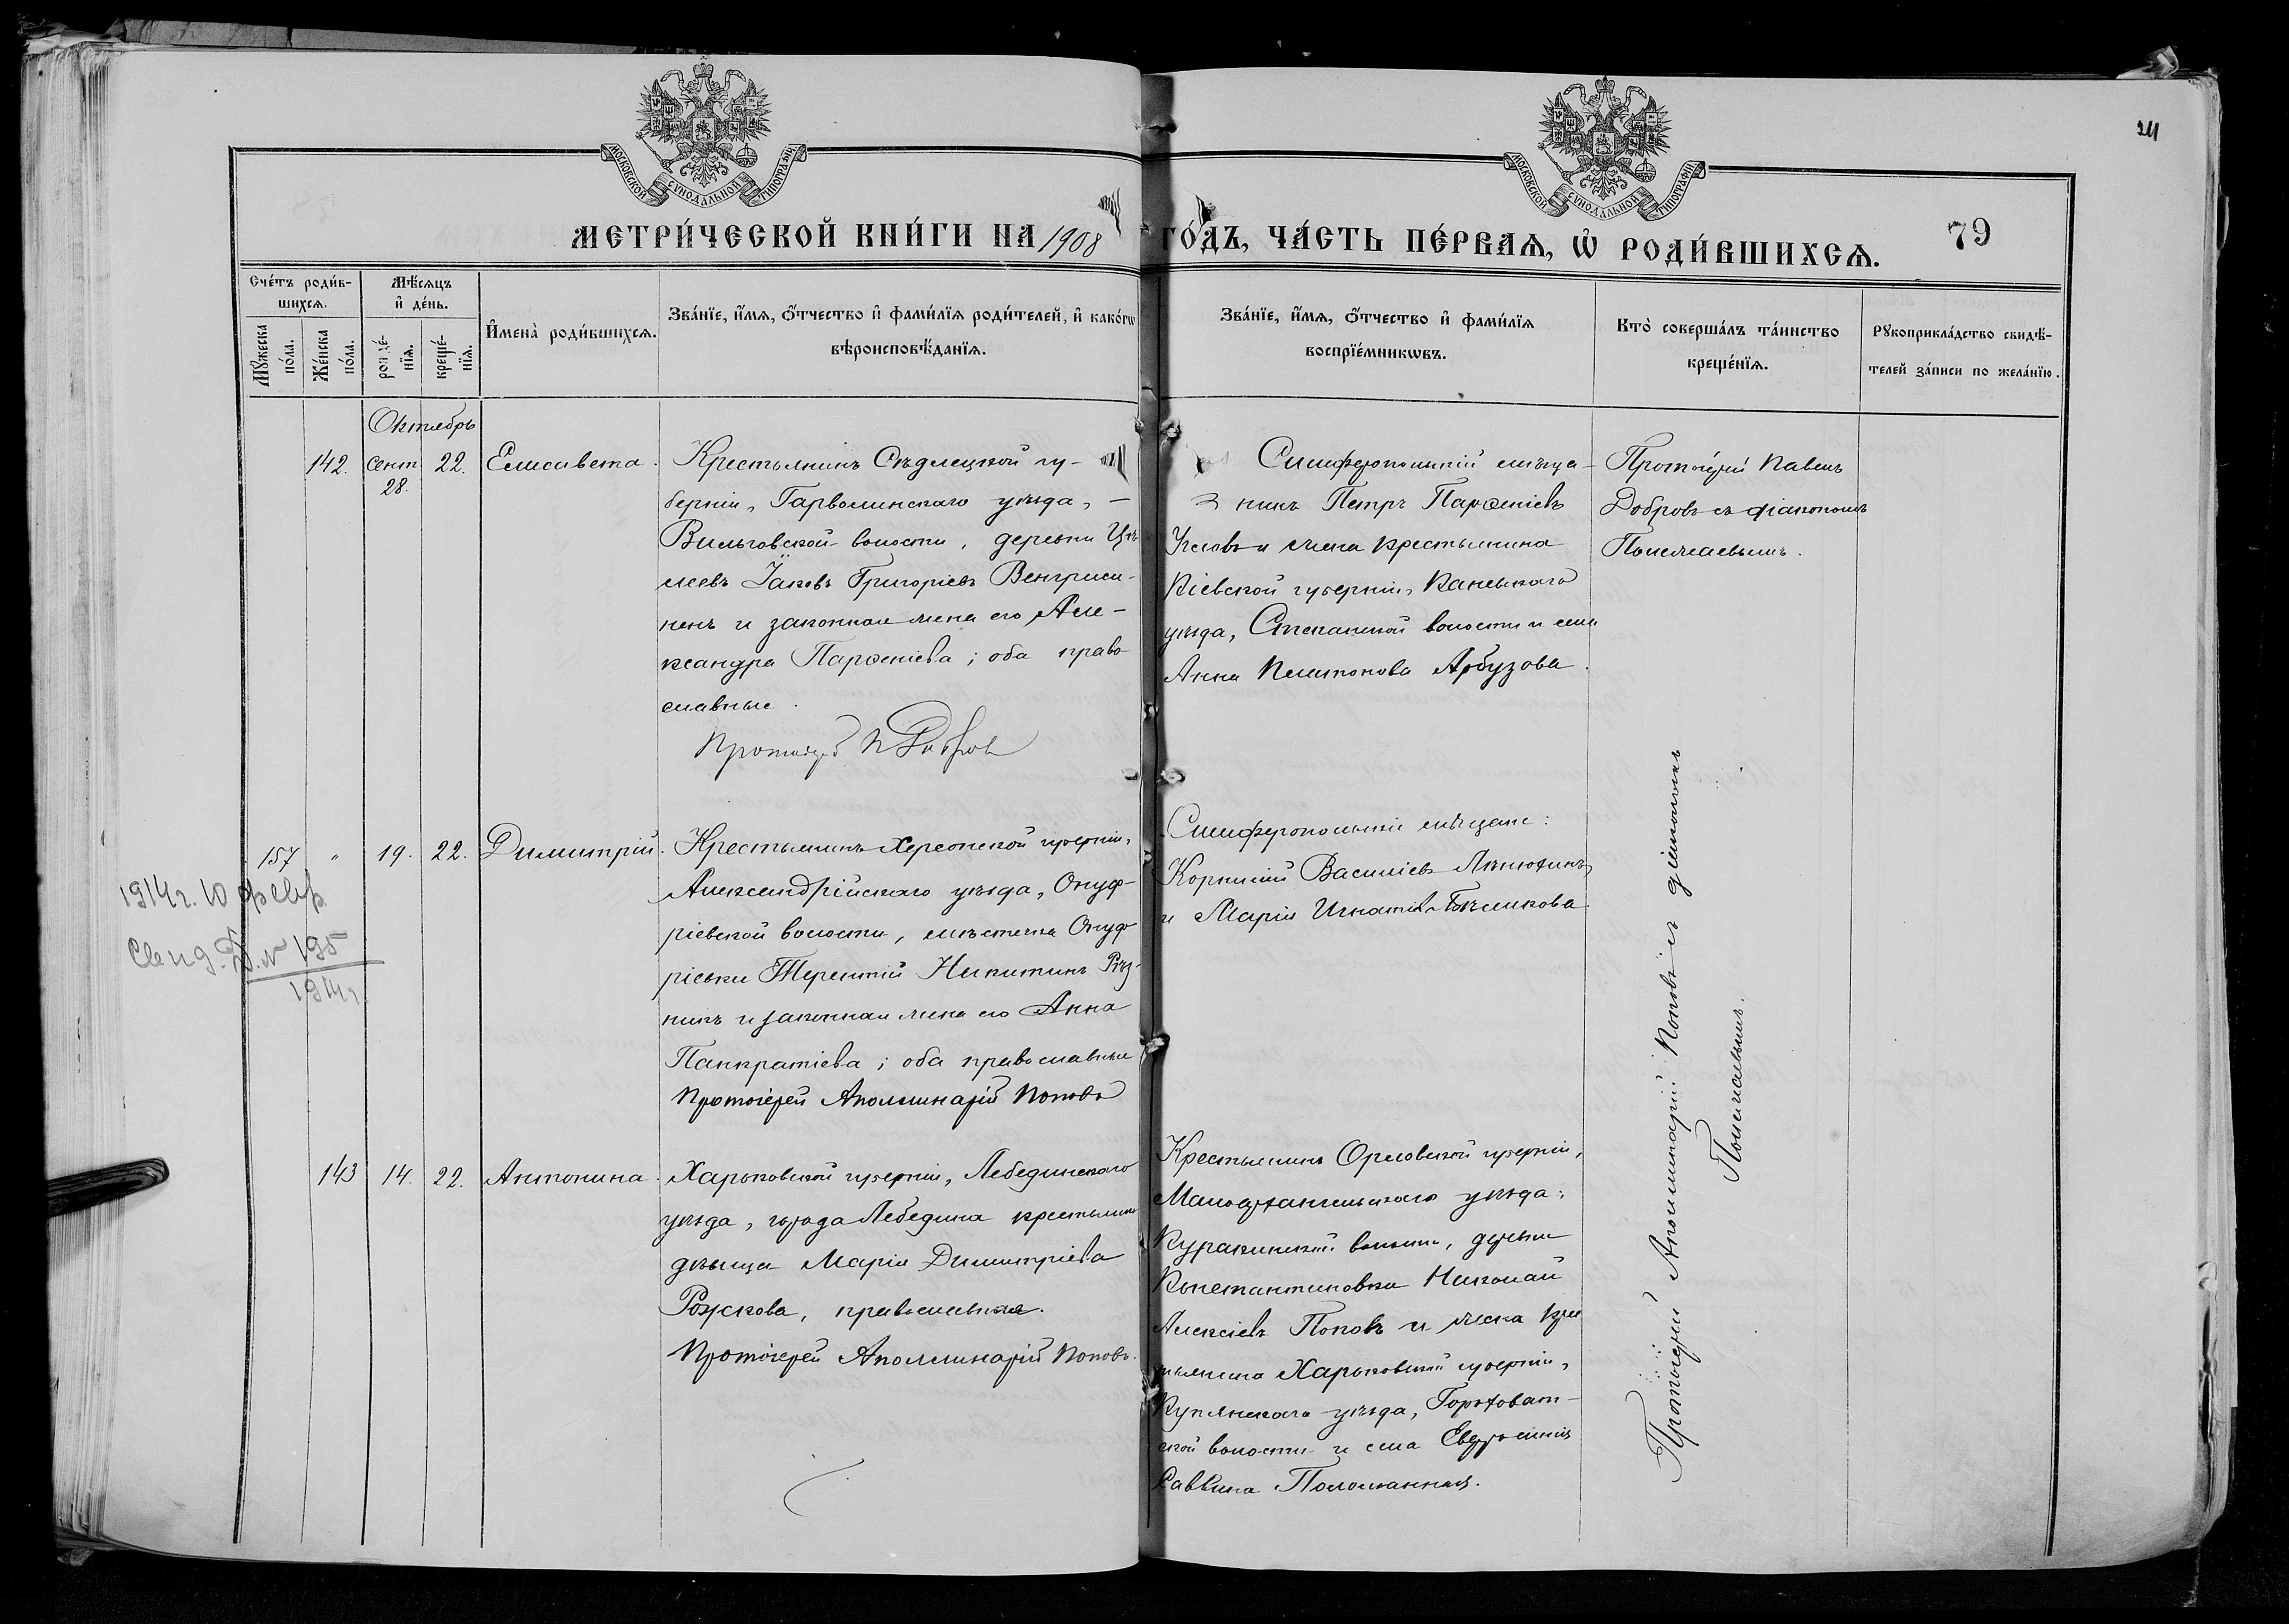 24
МОСКОВСКОЙ СѴНОДАЛЬНОЙ ТИПОГРАФІИ
МОСКОВСКОЙ СѴНОДАЛЬНОЙ ТИПОГРАФІИ
МЕТРИ́ЧЕСКОЙ КНИ́ГИ НА 1908 ГО́ДЪ, ЧА́СТЬ ПЕ́РВАѦ, Ѡ҆ РОДИ́ВШИХСѦ.
79
Сче́тъ роди́в-
шихсѧ.
Мꙋ́жеска
по́ла.
Же́нска
по́ла.
Мѣ́сѧцъ
и҆ де́нь.
рожде́-
нїѧ.
креще́-
нїѧ.
И҆мена̀ роди́вшихсѧ.
Зва́нїе, и҆́мѧ, ѻ҆́тчество и҆ фами́лїѧ роди́телей, и҆ како́гѡ
вѣроисповѣ́данїѧ.
Зва́нїе, и҆́мѧ, ѻ҆́тчество и҆ фами́лїѧ
воспрїе́мникѡвъ.
Кто̀ соверша́лъ та́инство
креще́нїѧ.
Рꙋкоприкла́дство свидѣ́-
телей за́писи по жела́нїю.
Октябрь
142. Сент. 28. 22. Елисавета.
Крестьянинъ Сѣдлецкой гу-
берніи, Гарволинскаго уѣзда,
Вильговской волости, деревни
Іаковъ Григоріевъ
и законная жена его Але-
ксандра Парѳеніева; оба право-
славные.
Протоіерей П Добровъ
Симферопольскій мѣща-
нинъ Петръ Парѳеніевъ
и жена крестьянина
Кіевской губерніи, Каневскаго
уѣзда, Степанской волости и села
Анна Платонова Арбузова.
Протоіерей Павелъ
Добровъ съ діакономъ
157 " 19. 22. Димитрій.
Крестьянинъ Херсонской губерніи,
Александрійскаго уѣзда, Онуф-
ріевской волости, мѣстечка Онуф-
ріевки Терентій Никитинъ Рѣз-
никъ и законная жена его Анна
Панкратіева; оба православные
Протоіерей Аполлинарій Поповъ
Симферопольскіе мѣщане:
Корнилій Василіевъ
и Марія Игнатіева Бѣликова
1914г. 10 февр.
Свид. № 195
1914г
143 14. 22. Антонина.
Харьковской губерніи, Лебединскаго
уѣзда, города Лебедина крестьянка
дѣвица Марія Димитріева
Рожкова, православная.
Протоіерей Аполлинарій Поповъ.
Крестьянинъ Орловской губерніи,
Малоархангельскаго уѣзда,
Куракинской волости, деревни
Константиновки Николай
Алексіевъ Поповъ и жена кре
стьянина Харьковской губерніи,
Купянскаго уѣзда, Гороховат-
ской волости и села Евфросинія
Саввина Поломанная.
Протоіерей Аполлинарій Поповъ съ діакономъ